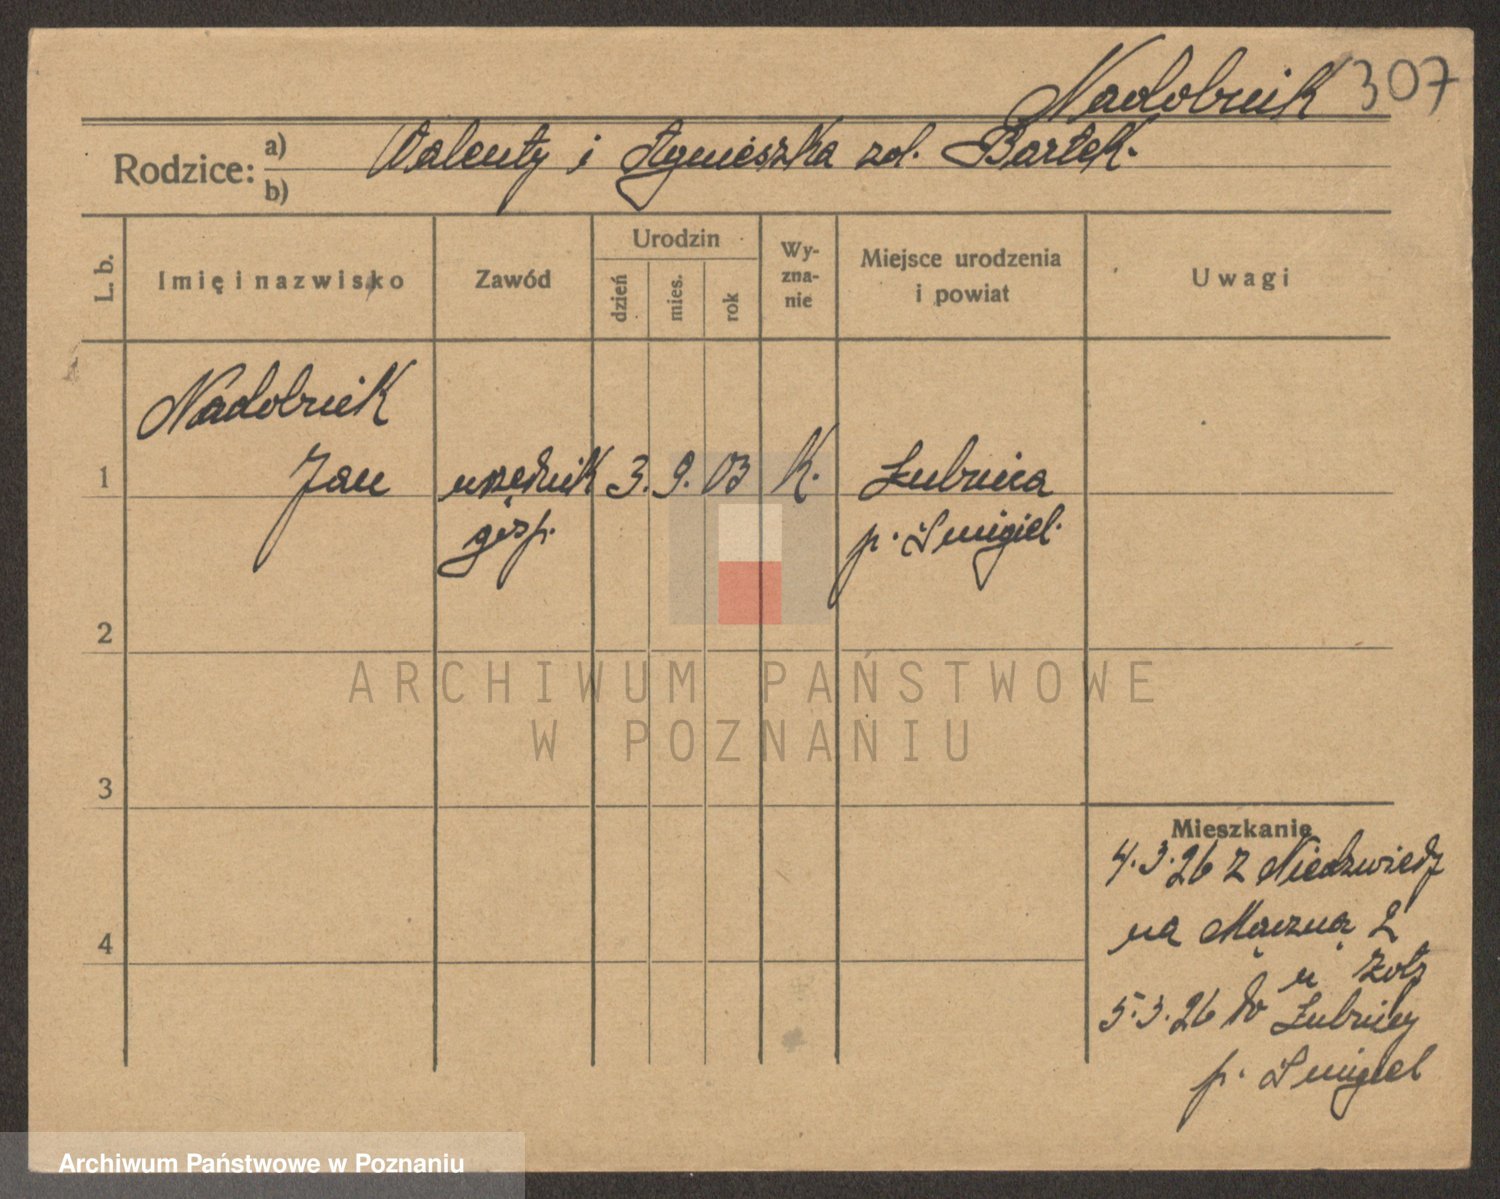 Nadobnik 307
Rodzice: a) Walenty i Agnieszka zol. Bartek.
b)
L. b.
Imię i nazwisko
Zawód
Urodzin
dzień
mies.
rok
Wy-
zna-
nie
Miejsce urodzenia
i powiat
Uwagi
Nadobnik
1 Jan urzędnik 3. 9. 03 K. Łubnica
gosp. p. Śmigiel.
2
ARCHIWUM PAŃSTWOWE
W POZNANIU
3
Mieszkanie
4.3.26 z Niedzwiedz
na Mączną 2
4
u
5.3.26 do Łubnicy
p. Śmigiel
Archiwum Państwowe w Poznaniu